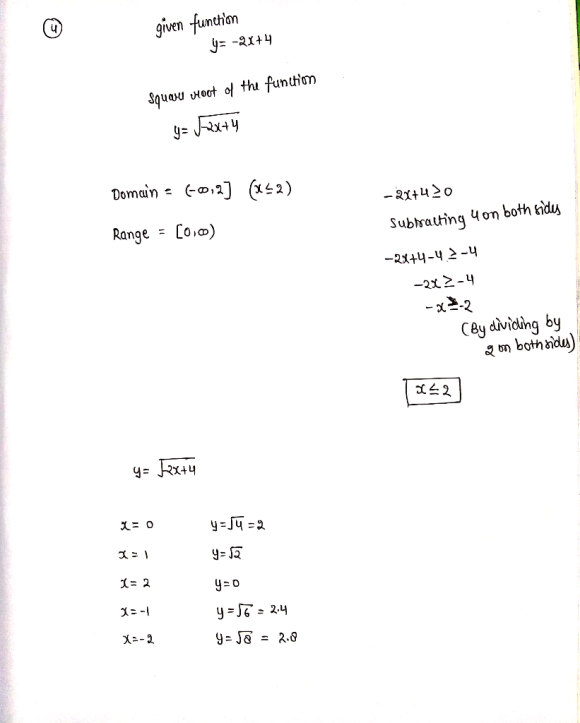 (4) given function
y = -2x+4
Square root of the function
y = √-2x+4
Domain = (-∞,2] (x≤2)
Range = [0,∞)
-2x+4≥0
Subtracting 4 on both sides
-2x+4-4 ≥ -4
-2x ≥ -4
-x ≥ -2
(By dividing by
2 on both sides)
x ≤ 2
y = √-2x+4
x = 0 y = √4 = 2
x = 1 y = √2
x = 2 y = 0
x = -1 y = √6 = 2.4
x = -2 y = √8 = 2.8